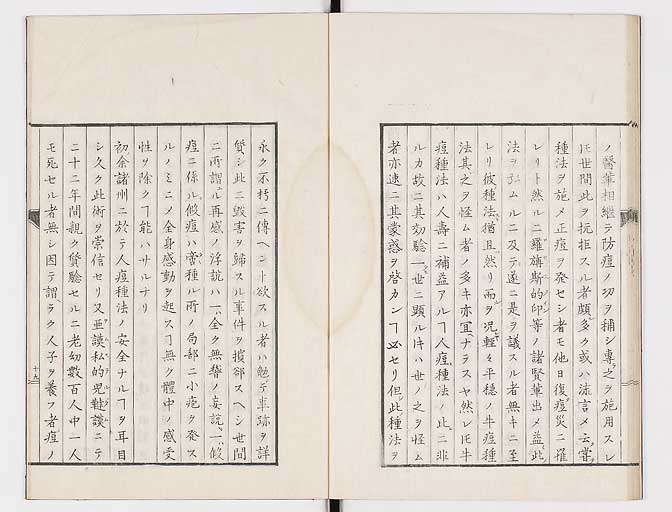 ノ醫輩相継テ防痘ノ功ヲ稱シ專之ヲ施用スレ
𪜈世間此ヲ抗拒スル者頗多ク或ハ流言メ云嘗
種法ヲ施メ正痘ヲ発セシ者モ他日復痘災ニ罹
レリト然ルニ羅旃斯的印等ノ諸賢輩出メ益此
法ヲ弘ムルニ及テ遂ニ是ヲ議スル者無キニ至
レリ彼種法猶且然リ而ヲ况輕キ平穏ノ牛痘種
法其之ヲ怪ム者ノ多キ亦宜ナラスヤ然レ𪜈牛
痘種法ハ人壽ニ補益アルヿ人痘種法ノ此ニ非
ルカ故ニ其効驗一世ニ顕ル𪜈ハ世ノ之ヲ怪ム
者亦速ニ其蒙惑ヲ啓カンヿ必セリ但此種法ヲ
永ク不朽ニ傳ヘント欲スル者ハ勉テ車跡ヲ詳
貭シ此ニ毀害ヲ歸スル事件ヲ擯郤スヘシ世間
ニ所謂再感ノ浮説ハ一全ク無稽ノ妄説一候
痘ニ係ル候痘ハ嘗種ル所ノ局部ニ小疱ヲ発ス
ルノミニノ全身感動ヲ起スヿ無ク體中ノ感受
性ヲ除クヿ能ハサルナリ
初余諸州ニ於テ人痘種法ノ安全ナルヿヲ耳目
シ久ク此術ヲ崇信セリ又亜謨私的児韃謨ニテ
二十二年間親ク貭驗セルニ老幼數百人中一人
モ死セル者無シ因テ謂ラク人子ヲ養フ者痘ノ
十九